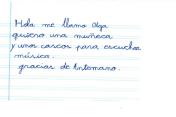 Hola me llamo Olga
quiero una muñeca
y unos cascos para escuchar
música.
gracias de Antemano.